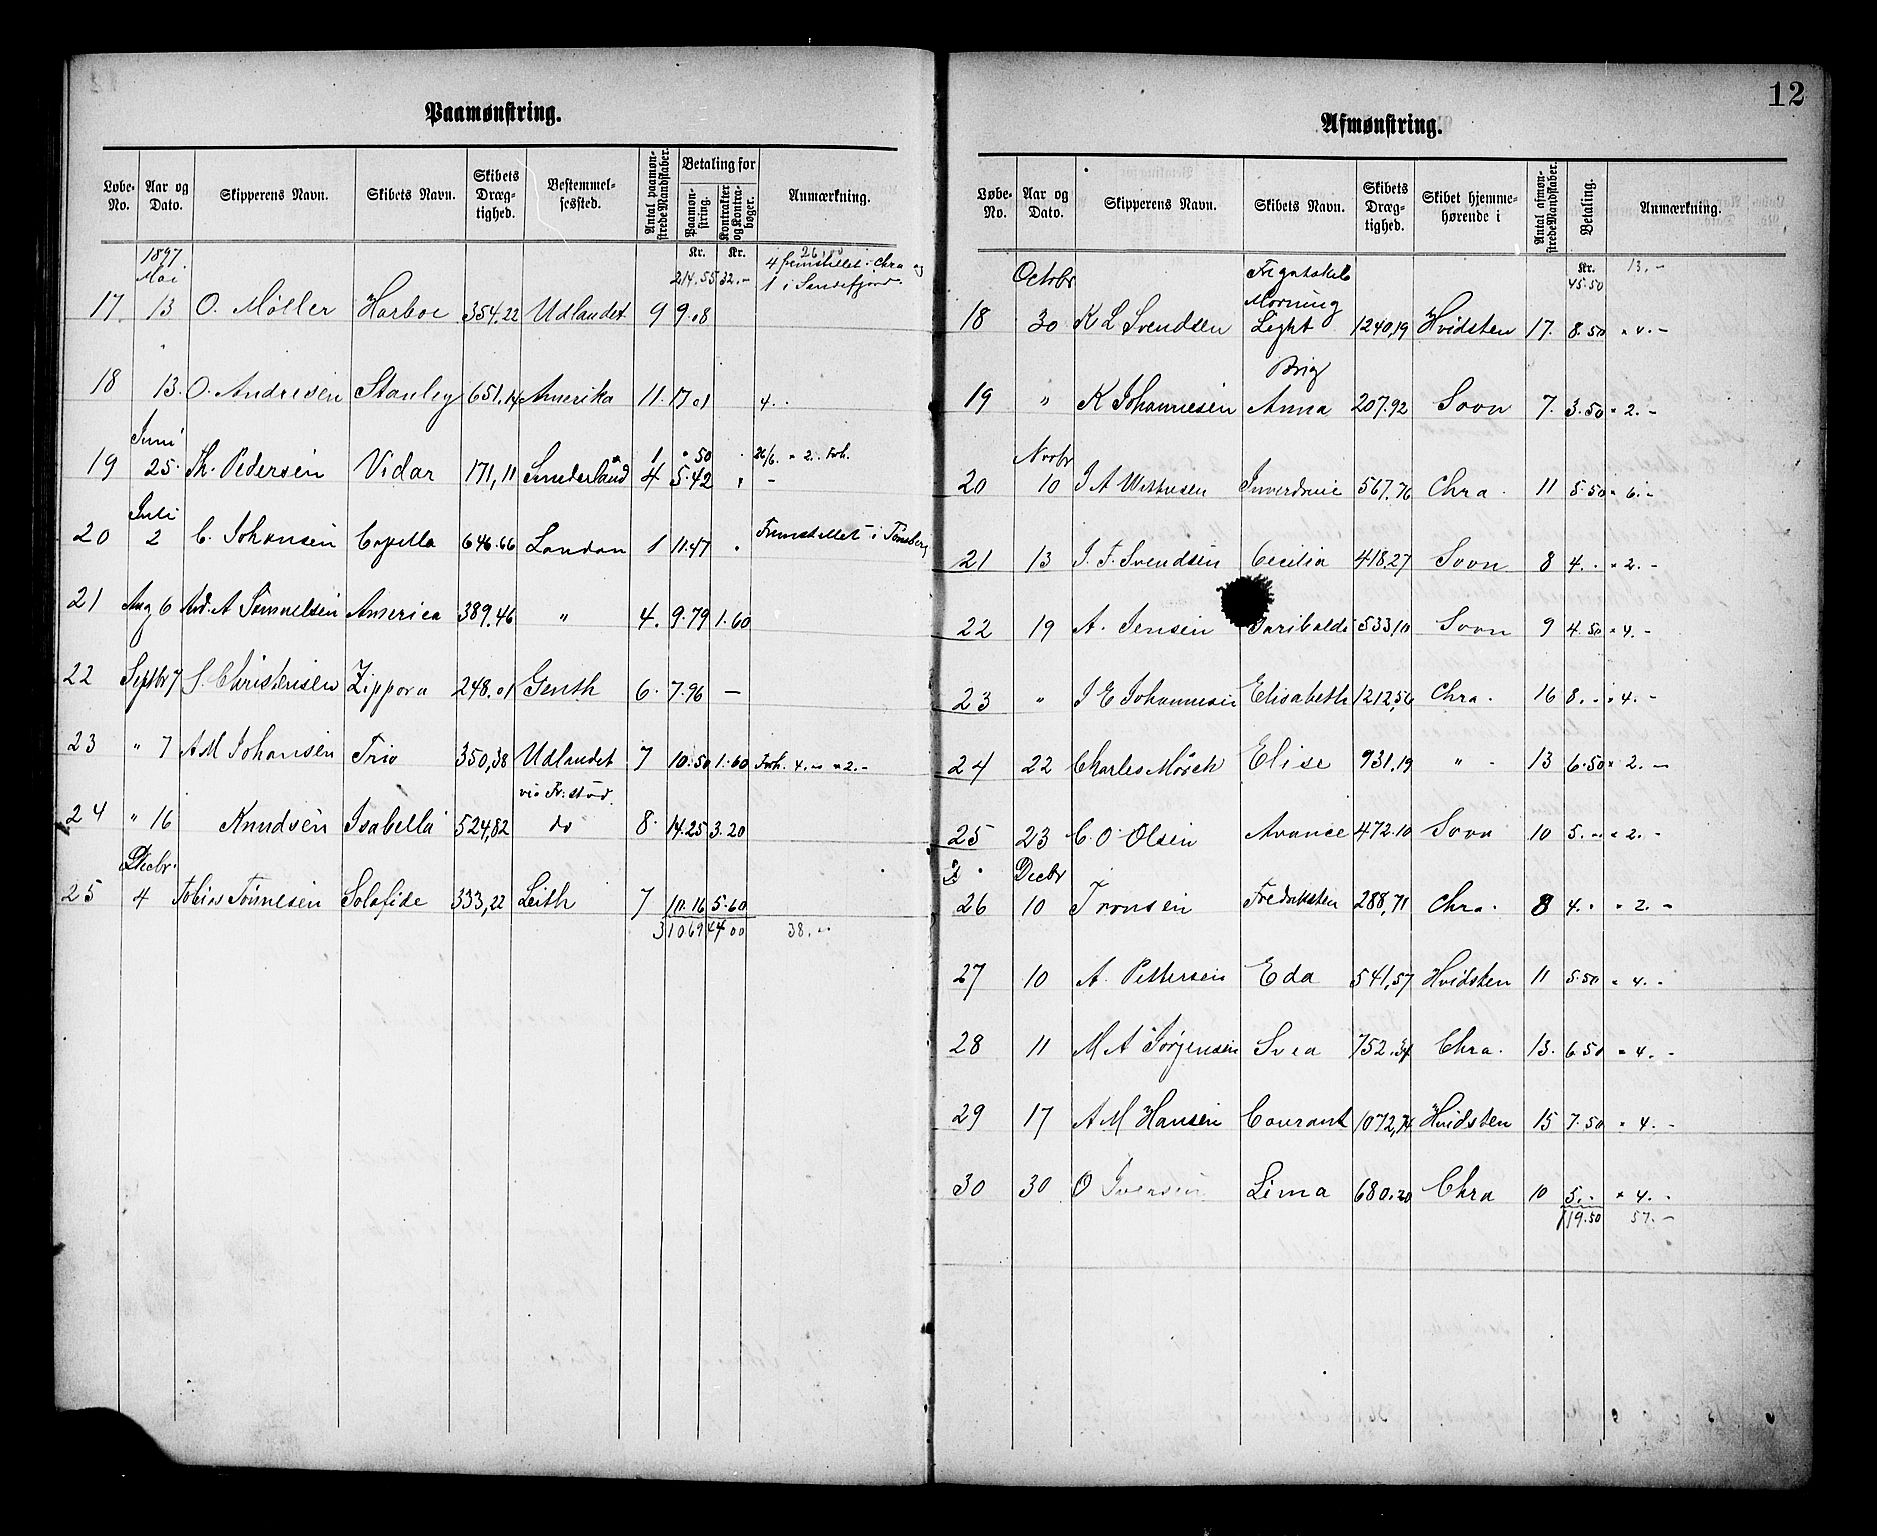 12
Paamønstring.
Løbe-No. Aar og Dato. Skipperens Navn. Skibets Navn. Skibets Dræg-tighed. Bestemmel-sessted. Antal paamøn-strede Mandskaber. Betaling for Paamøn-string. Kontrakter og Kontra-bøger. Anmærkning.
1897 Kr. Kr. 26,00
Mai 214.55 32.- 4 fremstillet i Chra og 1 i Sandefjord
17 13 O. Møller Harboe 354.22 Udlandet 9 9.08
18 13. O. Andresen Stanley 651,14 Amerika 11. 17.01 4. -
Juni 1 " 50 26/6. " 2. Forh.
19 25. Th. Pedersen Vidar 171,11 Sunderland 4 5.42 " -
Juli
20 2 C. Johansen Capella 646.66 London 1 11.47 " Fremstillet i Tønsberg
21 Aug 6 And. A Samuelsen America 389.46 " 4. 9.79 1.60
22 Septbr 7 S. Christensen Zippora 248.01 Genth 6. 7.96 —
23 " 7 A M Johansen Trio 350,38 Udlandet 7 10.50 1.60 Forh. 4.- " 2.-
via Fr:stad.
24 " 16 Knudsen Isabella 524,82 do 8. 14.25 3.20
Decbr.
25 4 Tobias Tønnesen Solafide 333,22 Leith 7 10.16 5.60
310 69 44 00 38.-
Afmønstring.
Løbe-No. Aar og Dato. Skipperens Navn. Skibets Navn. Skibets Dræg-tighed. Skibet hjemme-hørende i Antal afmøn-strede Mandskaber. Betaling. Anmærkning.
Octobr Fregatskib Kr. 45.50 13.-
Morning
18 30 K L Svendsen Light 1240,19 Hvidsten 17. 8.50 " 4. -
Brig
19 " K Johannesen Anna 207.92 Sovn 7. 3.50 " 2. -
Novbr
20 10 J A Inverdruie 567,76 Chra. 11 5.50 " 6. -
21 13 J. F. Svendsen Cecilia 418.27 Sovn 8 4. - " 2. -
22 19 A. Jensen Garibaldi 533,10 Sovn 9 4.50 " 4. -
23 " J E Johannesen Elisabeth 1212,56 Chra. 16 8. - " 4. -
24 22 Charles Mörch Elise 931.19 " - 13 6.50 " 2. -
25 23 C. O Olsen Avance 472.10 Sovn 10 5. - " 2. -
Decbr
26 10 Fredriksten 288,71 Chra. 8 4. - " 2. -
27 10 A. Pettersen Eda 541,57 Hvidsten 11 5.50 " 4. -
28 11 M A Jørgensen Svea 752.34 Chra. 13. 6.50 " 4. -
29 17 A M Hansen Courant 1072,74 Hvidsten 15 7.50 " 4. -
30 30 O Iversen Lima 680.20 Chra 10 5. - " 4. -
119.50 57. -